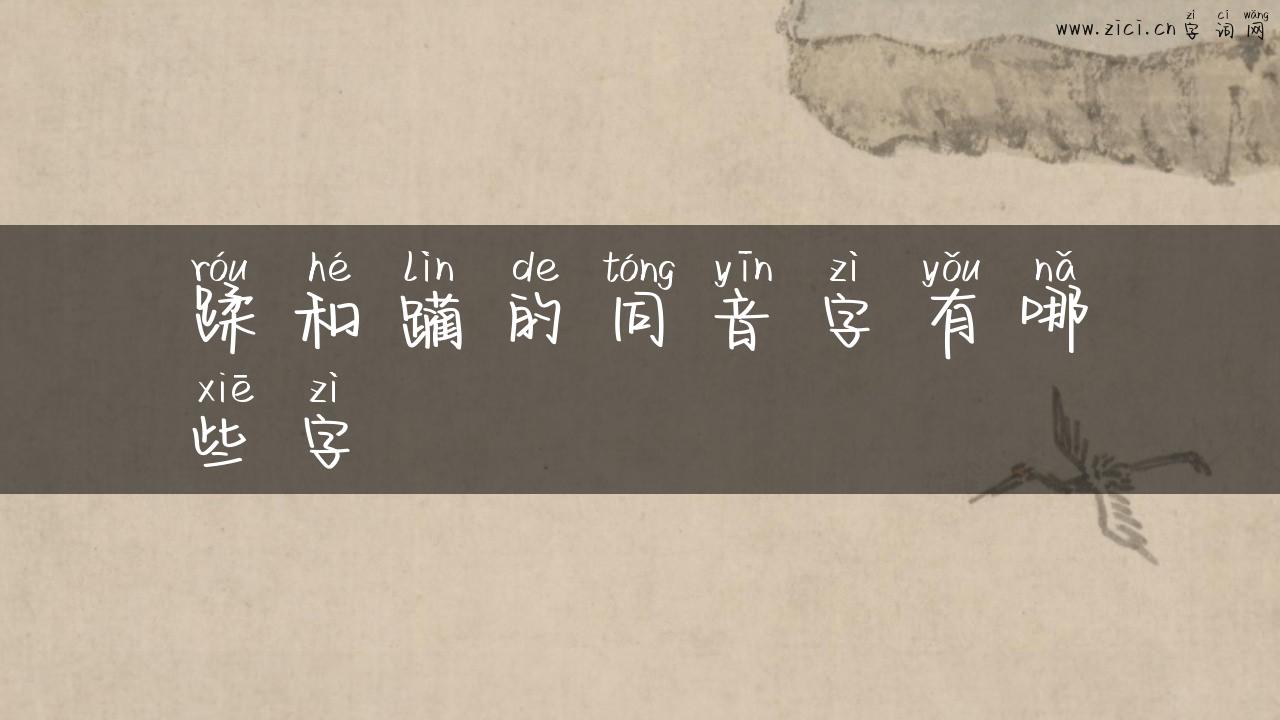 zì cí wǎng
www.zici.cn 字词网
róu hé lìn de tóng yīn zì yǒu nǎ
蹂和躏的同音字有哪
xiē zì
些字